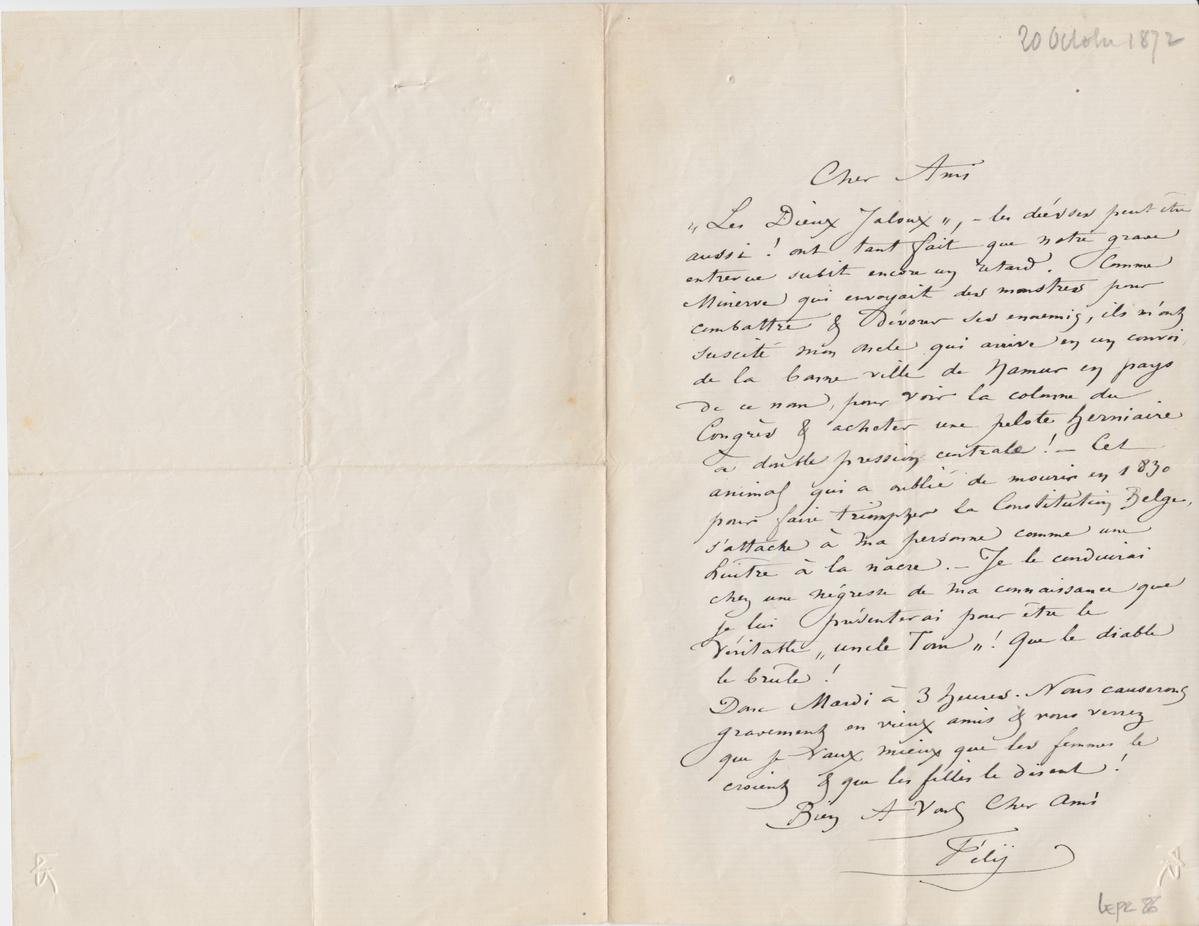 20 Octobre 1872
Cher Ami
„ Les Dieux Jaloux „, - les déesses peut être
aussi ! ont tant fait que notre grave
entrevue subit encore un retard. Comme
Minerve qui envoyait des monstres pour
combattre & dévorer ses ennemis, ils m'ont
suscité mon oncle qui arrive en un convoi
de la bonne ville de Namur en pays
de ce nom, pour voir la colonne du
Congrès & acheter une pelote herniaire
à double pression centrale ! - Cet
animal qui a oublié de mourir en 1830
pour faire triompher la Constitution Belge,
s'attache à ma personne comme une
huître à la nacre. - Je le conduirai
chez une négresse de ma connaissance que
je lui présenterai pour être le
véritable „ uncle Tom „ ! Que le diable
le brûle !
Donc Mardi à 3 heures. Nous causerons
gravement en vieux amis & vous verrez
que je vaux mieux que les femmes le
croient & que les filles le disent !
Bien A Vous Cher Ami
Fély
Lepr 86